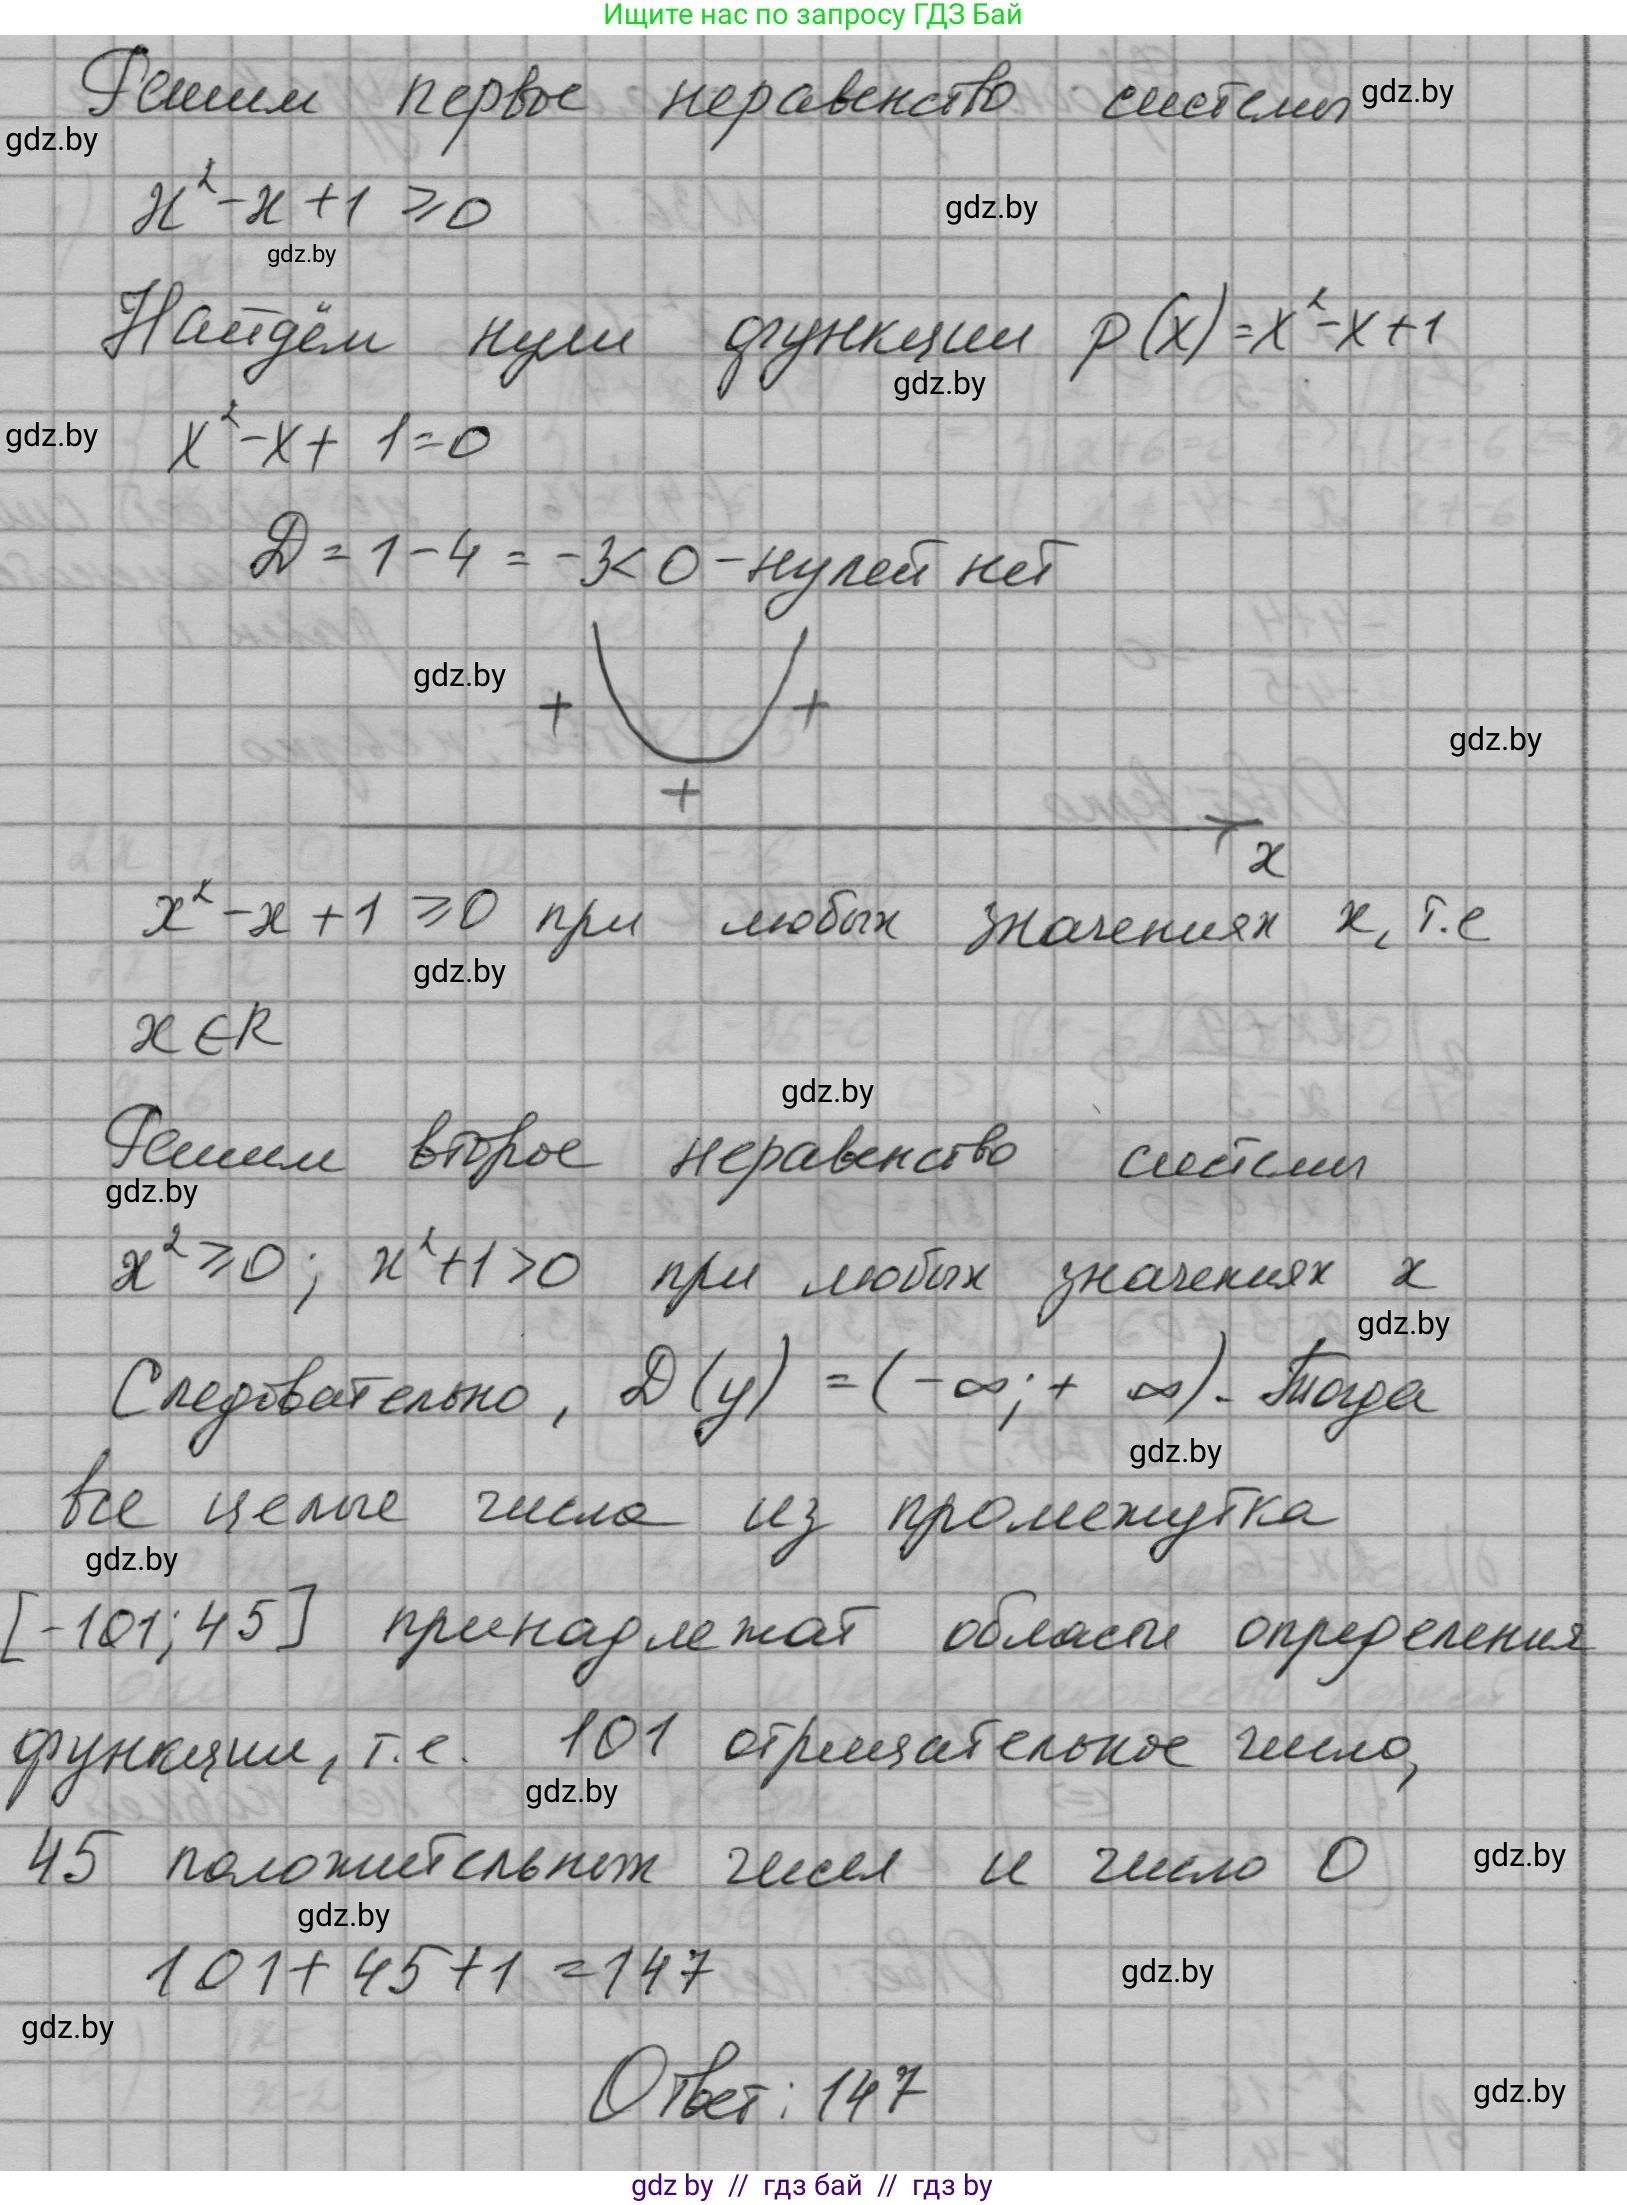 Ищите нас по запросу ГДЗ Бай
Решим первое неравенство системы gdz.by
gdz.by
x² - x + 1 ⩾ 0 gdz.by
gdz.by
Найдём нули функции p(x) = x² - x + 1
gdz.by
gdz.by x² - x + 1 = 0
D = 1 - 4 = -3 < 0 - нулей нет
gdz.by
+ +
gdz.by
+
x
x² - x + 1 ⩾ 0 при любых значениях x, т.е
gdz.by
x ∈ R
gdz.by
Решим второе неравенство системы
gdz.by
x² ⩾ 0; x² + 1 > 0 при любых значениях x
gdz.by
Следовательно, D(y) = (-∞; + ∞). Тогда
gdz.by
все целые числа из промежутка
gdz.by
[-101; 45] принадлежат области определения
функции, т.е. 101 отрицательное число,
gdz.by
45 положительных чисел и число 0 gdz.by
gdz.by
101 + 45 + 1 = 147 gdz.by
gdz.by
Ответ: 147 gdz.by
gdz by // гдз бай // гдз by